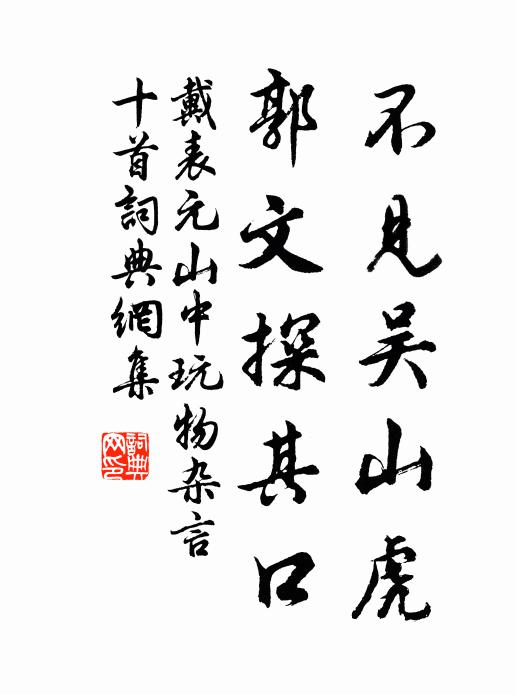 不见吴山虎
郭文探其口
戴表元山中玩物杂言
十首詞典網集
詞典网印